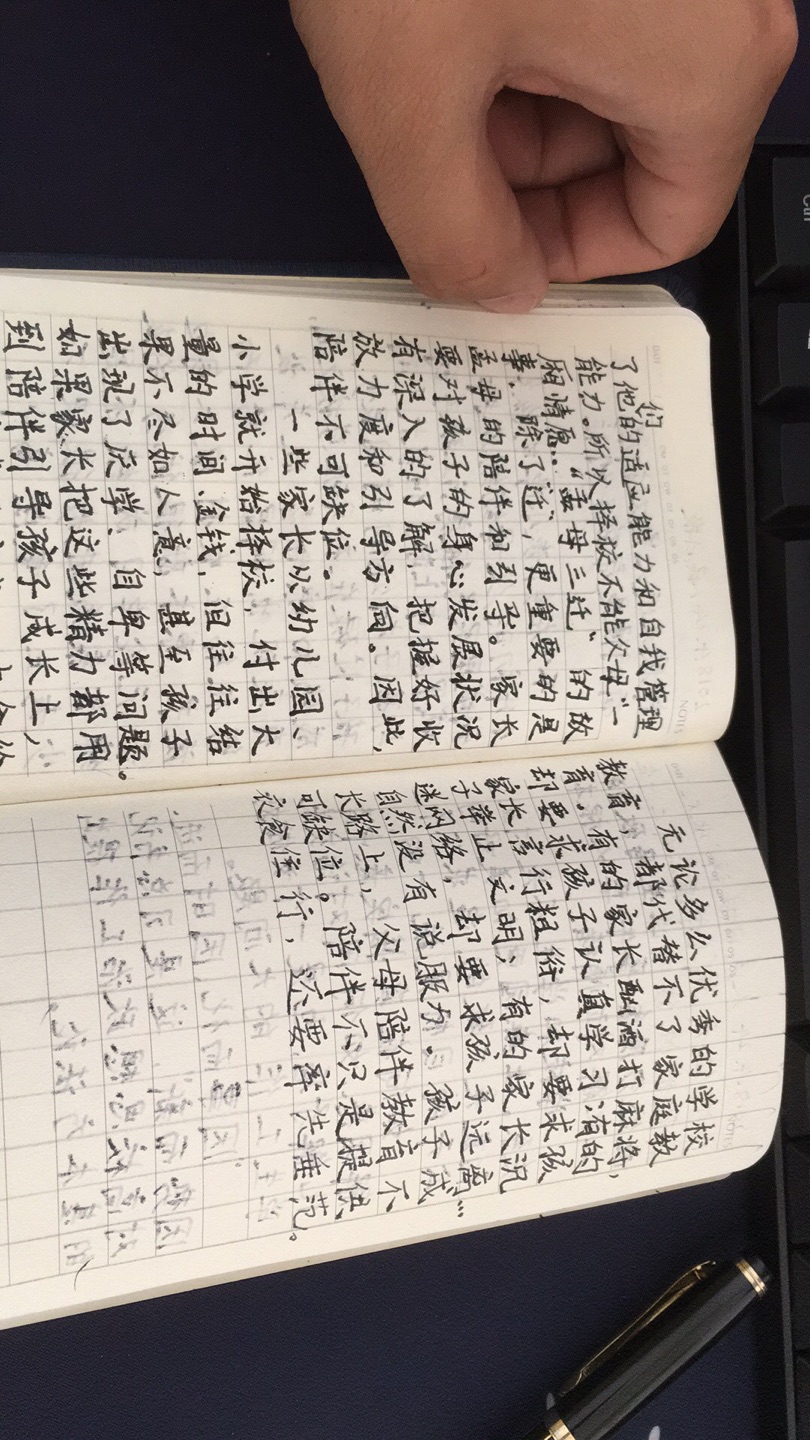 们
了他的适应能力和自我管理
能力。所以择校不能父母“一
厢情愿”。“孟母三迁”的故
事,除了“迁”,更重要的是
孟母的陪伴和引导。家长
要对孩子的身心发展状况
有深入的了解,把握好收
放力度和引导方向。因此,
陪伴不可缺位。
一些家长从幼儿园、
小学就开始择校,付出大
量的时间、金钱,但往往结
果不尽如人意,甚至孩子
出现了厌学、自卑等问题。
如果家长把这些精力都用
到陪伴引导孩子成长上,
无论多么优秀的学校
教育,都代替不了家庭教
育。有的家长酗酒打麻将,
却要求孩子认真学习;有的
家长言行粗俗,却要求孩
子举止文明;有的家长沉
迷网络,却要求孩子远离…
自然没有说服力。孩子成
长路上,父母陪伴教育不
可缺位。陪伴不只是提供
衣食住行,还要率先垂范。
NOTES
Ctrl